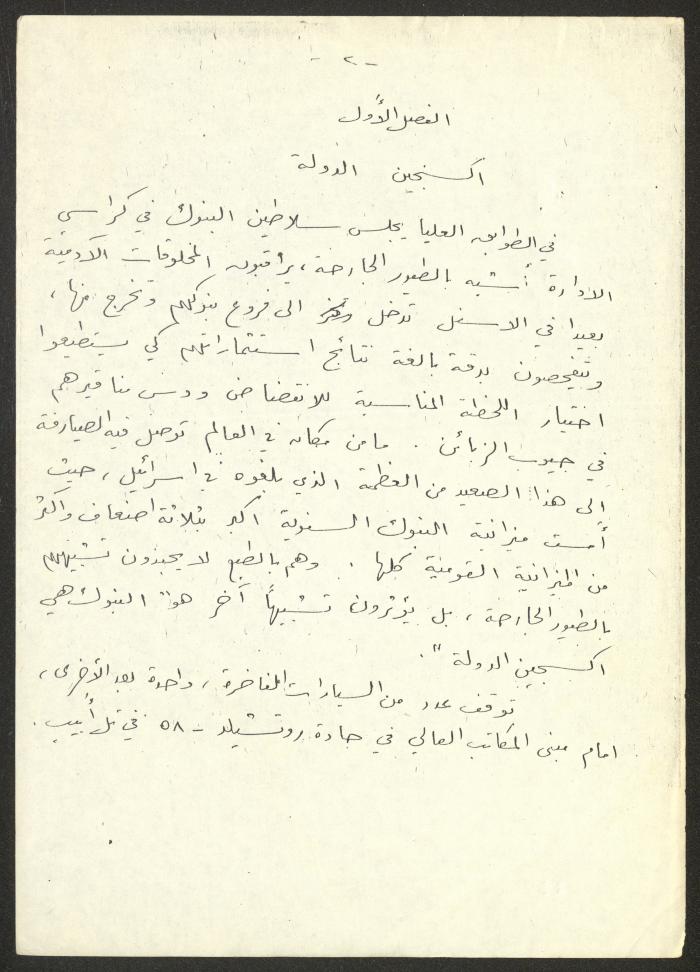 - ٢ -
الفصل الأول
اكسنجين الدولة
في الطوابق العليا يجلس سلاطين البنوك في كراسي
الادارة أشبه بالطيور الجارحة، يراقبون المخلوقات الآدمية
بعيدا في الاسفل تدخل الى فروع بنوكهم وتخرج منها،
ويتفحصون بدقة بالغة نتائج استثماراتهم كي يستطيعوا
اختيار اللحظة المناسبة للانقضاض ودس مناقيرهم
في جيوب الزبائن. ما من مكان في العالم توصل فيه الصيارفة
الى هذا الصعيد من العظمة الذي بلغوه في اسرائيل، حيث
أمست ميزانية البنوك السنوية اكبر بثلاثة اضعاف واكثر
من الميزانية القومية كلها. وهم بالطبع لا يحبذون تشبيههم
بالطيور الجارحة، بل يؤثرون تشبيهاً آخر هو "البنوك هي
اكسجين الدولة".
توقف عدد من السيارات الفاخرة، واحدة بعد الأخرى،
امام مبنى المكاتب العالي في جادة روتشيلد - ٥٨ في تل أبيب.